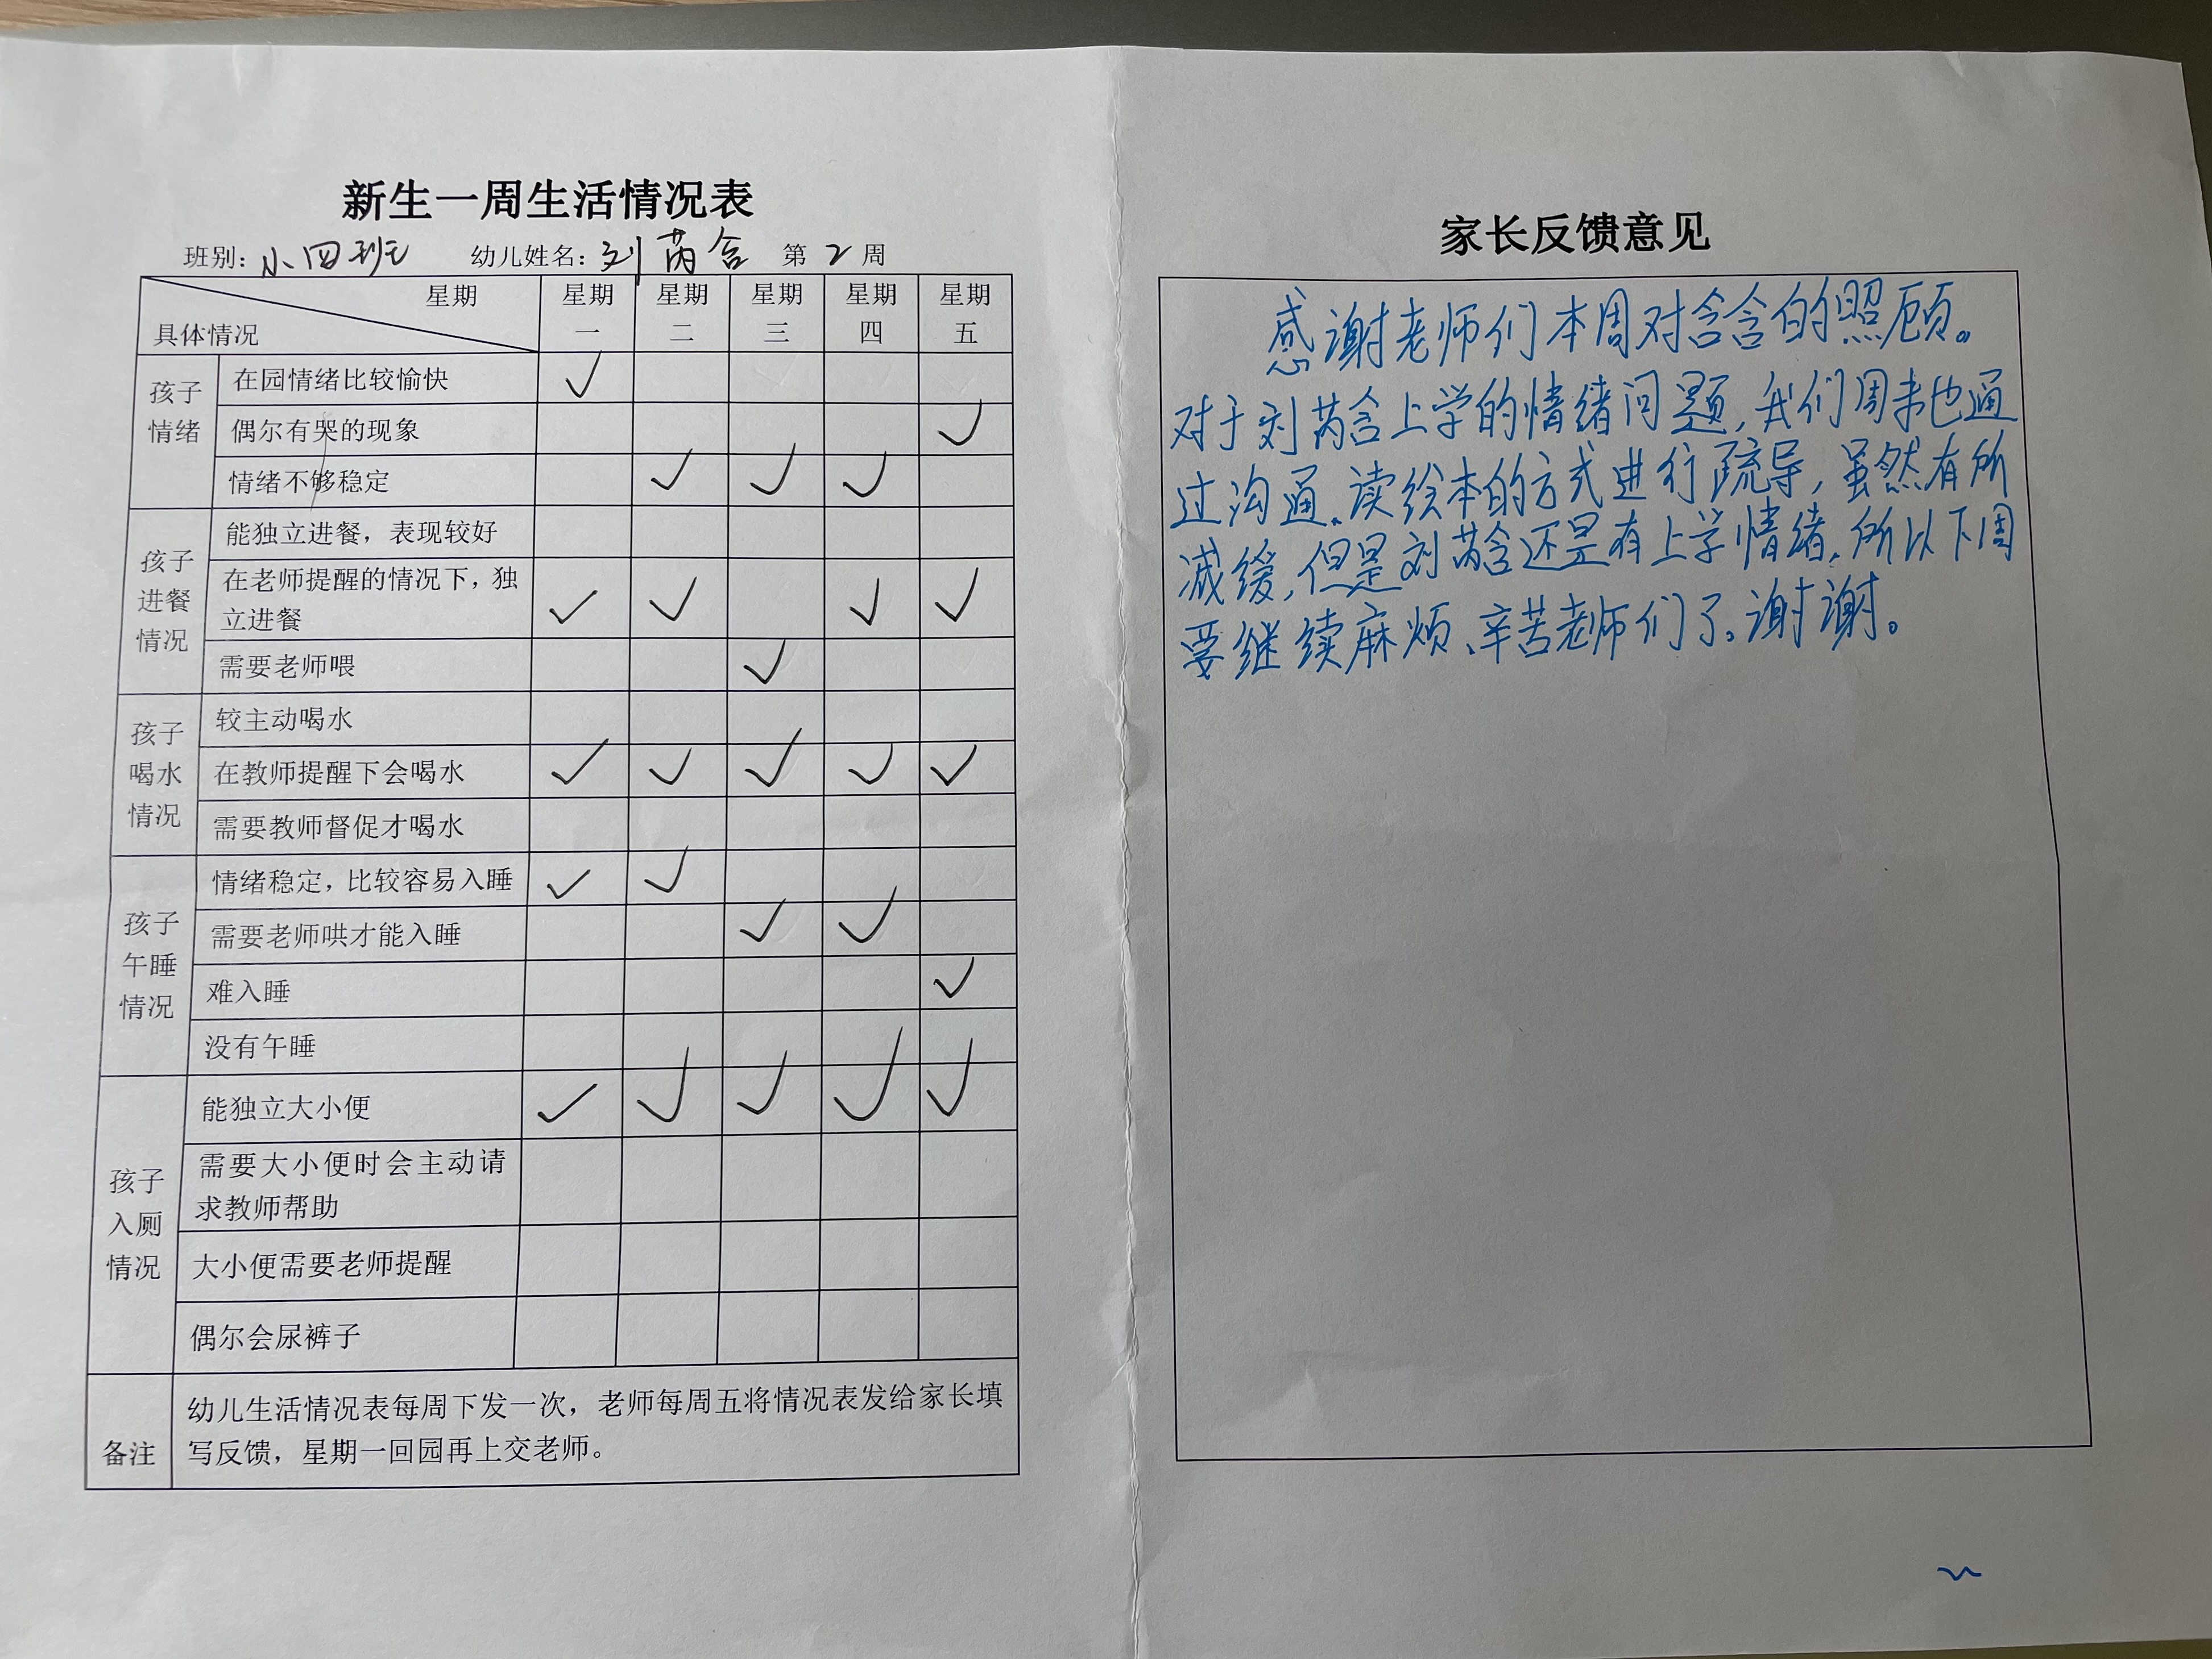 新生一周生活情况表
班别：小四班 幼儿姓名：刘芮含 第2周
星期
具体情况
星期一 星期二 星期三 星期四 星期五
孩子情绪
在园情绪比较愉快 ✓
偶尔有哭的现象 ✓
情绪不够稳定 ✓ ✓ ✓
孩子进餐情况
能独立进餐，表现较好
在老师提醒的情况下，独
立进餐 ✓ ✓ ✓ ✓
需要老师喂 ✓
孩子喝水情况
较主动喝水
在教师提醒下会喝水 ✓ ✓ ✓ ✓ ✓
需要教师督促才喝水
孩子午睡情况
情绪稳定，比较容易入睡 ✓ ✓
需要老师哄才能入睡 ✓ ✓
难入睡 ✓
没有午睡
孩子入厕情况
能独立大小便 ✓ ✓ ✓ ✓ ✓
需要大小便时会主动请
求教师帮助
大小便需要老师提醒
偶尔会尿裤子
备注
幼儿生活情况表每周下发一次，老师每周五将情况表发给家长填
写反馈，星期一回园再上交老师。
家长反馈意见
感谢老师们本周对含含的照顾。
对于刘芮含上学的情绪问题，我们周末也通
过沟通、读绘本的方式进行疏导，虽然有所
减缓，但是刘芮含还是有上学情绪，所以下周
要继续麻烦、辛苦老师们了。谢谢。